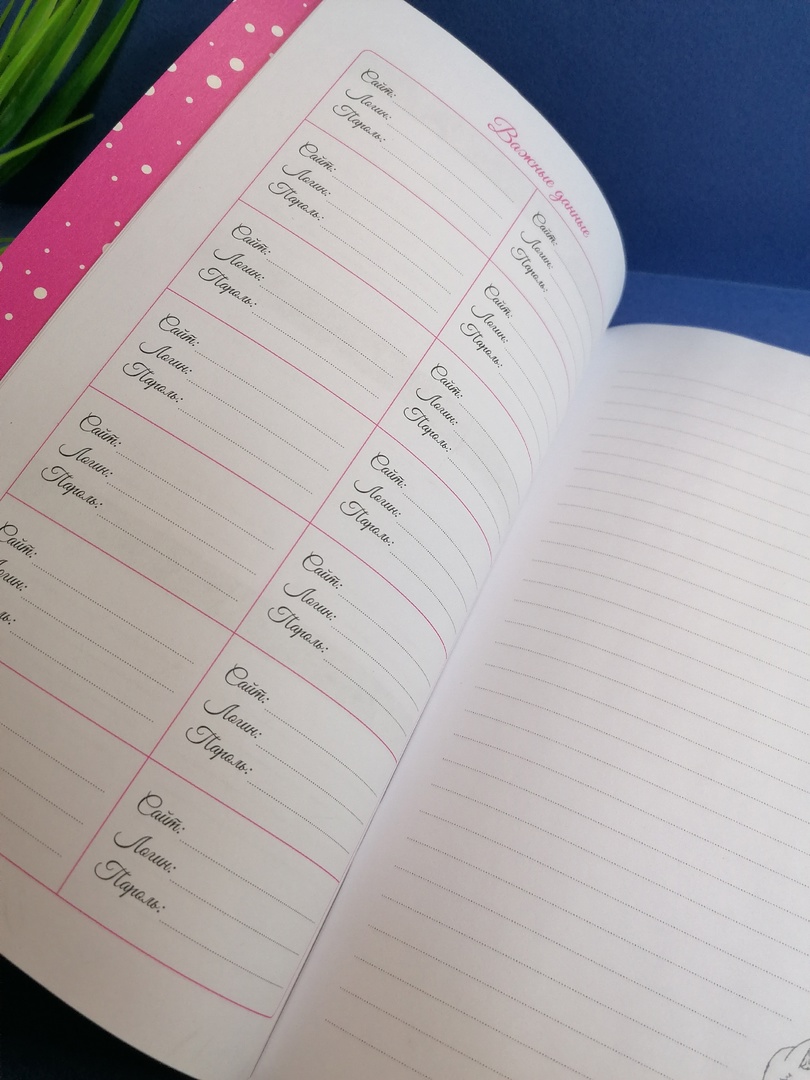 Важные данные
Сайт:
Логин:
Пароль:
Сайт:
Логин:
Пароль:
Сайт:
Логин:
Пароль:
Сайт:
Логин:
Пароль:
Сайт:
Логин:
Пароль:
Сайт:
огин:
ль:
Сайт:
Логин:
Пароль:
Сайт:
Логин:
Пароль:
Сайт:
Логин:
Пароль:
Сайт:
Логин:
Пароль:
Сайт:
Логин:
Пароль:
Сайт:
Логин:
Пароль:
Сайт:
Логин:
Пароль: